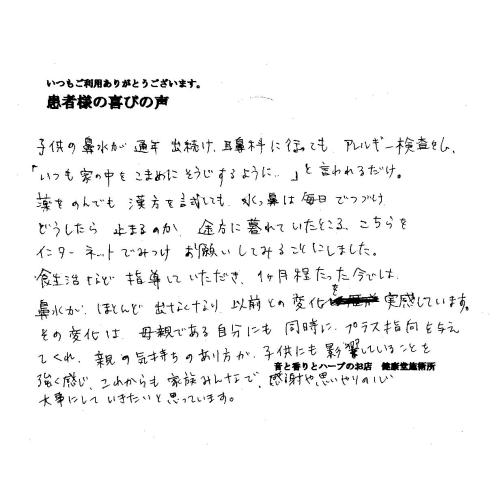 いつもご利用ありがとうございます。
患者様の喜びの声
子供の鼻水が通年出続け、耳鼻科に行っても、アレルギー検査をし、
「いつも家の中をこまめにそうじするように…」と言われるだけ。
薬をのんでも漢方を試しても、水っ鼻は毎日でつづけ
どうしたら止まるのか、途方に暮れていたところ、こちらを
インターネットでみつけお願いしてみることにしました。
食生活など指導していただき、1ヶ月程たった今では、
鼻水が、ほとんど出なくなり、以前との変化を実感しています。
その変化は、母親である自分にも同時に、プラス指向を与え
てくれ、親の気持ちのあり方が、子供にも影響していることを
音と香りとハーブのお店 健康堂施術所
強く感じ、これからも家族みんなで、感謝や思いやりの心
大事にしていきたいと思っています。